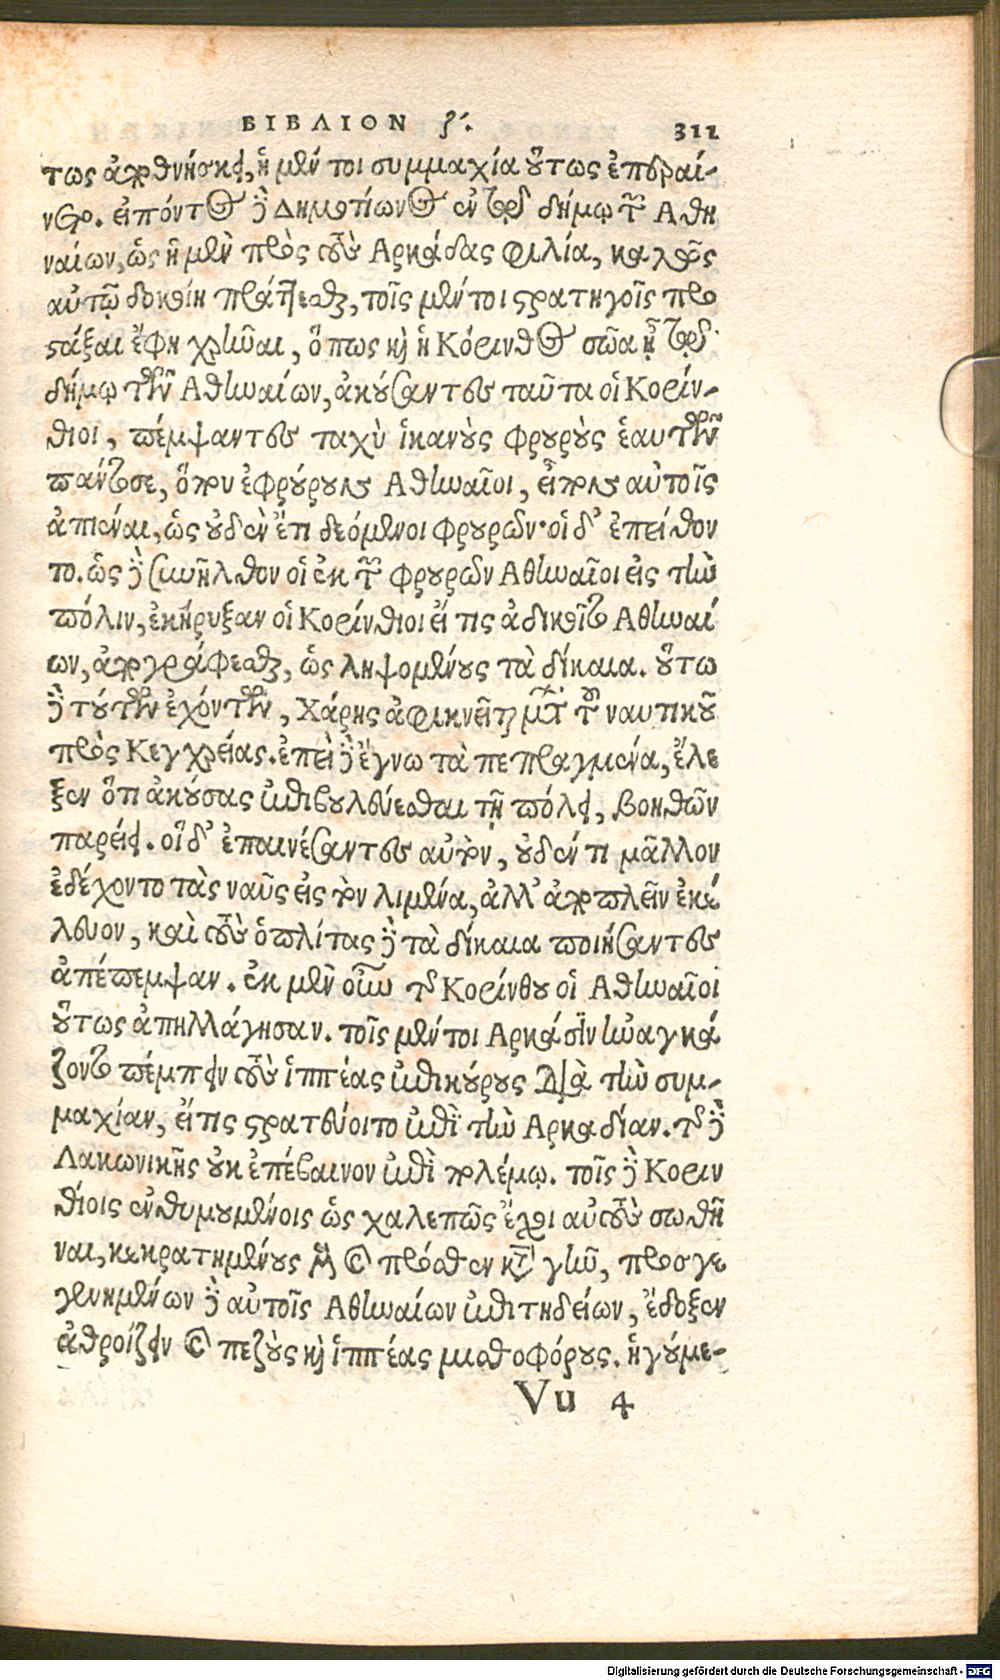 ΒΙΒΛΙΟΝ ζ΄. 312
τως ἀποθνήσκει, ἡ μέν τοι συμμαχία οὕτως ἐπεραί-
νετο. εἰπόντος δὲ Δημοτίωνος ἐν τῷ δήμῳ τῶν Ἀθη
ναίων, ὡς ἡ μὲν πρὸς τοὺς Ἀρκάδας φιλία, καλῶς
αὐτῷ δοκοίη πράττεσθαι, τοῖς μέντοι στρατηγοῖς προ
στάξαι ἔφη χρῆναι, ὅπως καὶ ἡ Κόρινθος σῶα ᾖ τῷ
δήμῳ τῶν Ἀθηναίων, ἀκούσαντες ταῦτα οἱ Κορίν-
θιοι, πέμψαντες ταχὺ ἱκανοὺς φρουροὺς ἑαυτῶν
πάντοσε, ὅπου ἐφρούρουν Ἀθηναῖοι, εἶπον αὐτοῖς
ἀπιέναι, ὡς οὐδὲν ἔτι δεόμενοι φρουρῶν· οἱ δ᾽ ἐπείθον
το. ὡς δὲ συνῆλθον οἱ ἐκ τῶν φρουρῶν Ἀθηναῖοι εἰς τὴν
πόλιν, ἐκήρυξαν οἱ Κορίνθιοι εἴ τις ἀδικοῖτο Ἀθηναί
ων, ἀπογράφεσθαι, ὡς ληψομένους τὰ δίκαια. οὕτω
δὲ τούτων ἐχόντων, Χάρης ἀφικνεῖται μετὰ τοῦ ναυτικοῦ
πρὸς Κεγχρείας. ἐπεὶ δὲ ἔγνω τὰ πεπραγμένα, ἔλε
ξεν ὅτι ἀκούσας ἐπιβουλεύεσθαι τῇ πόλει, βοηθῶν
παρείη. οἱ δ᾽ ἐπαινέσαντες αὐτὸν, οὐδέν τι μᾶλλον
ἐδέχοντο τὰς ναῦς εἰς τὸν λιμένα, ἀλλ᾽ ἀποπλεῖν ἐκέ
λευον, καὶ τοὺς ὁπλίτας δὲ τὰ δίκαια ποιήσαντες
ἀπέπεμψαν. ἐκ μὲν οὖν τῆς Κορίνθου οἱ Ἀθηναῖοι
οὕτως ἀπηλλάγησαν. τοῖς μέντοι Ἀρκάσιν ἠναγκά
ζοντο πέμπειν τοὺς ἱππέας ἐπικούρους διὰ τὴν συμ-
μαχίαν, εἴ τις στρατεύοιτο ἐπὶ τὴν Ἀρκαδίαν. τῆς δὲ
Λακωνικῆς οὐκ ἐπέβαινον ἐπὶ πολέμῳ. τοῖς δὲ Κοριν
θίοις ἐνθυμουμένοις ὡς χαλεπῶς ἔχοι αὐτοὺς σωθῆ
ναι, κεκρατημένους μὲν καὶ πρόσθεν κατὰ γῆν, προσγε
γενημένων δὲ αὐτοῖς Ἀθηναίων ἐπιτηδείων, ἔδοξεν
ἀθροίζειν καὶ πεζοὺς καὶ ἱππέας μισθοφόρους. ἡγούμε-
Vu 4
Digitalisierung gefördert durch die Deutsche Forschungsgemeinschaft - DFG